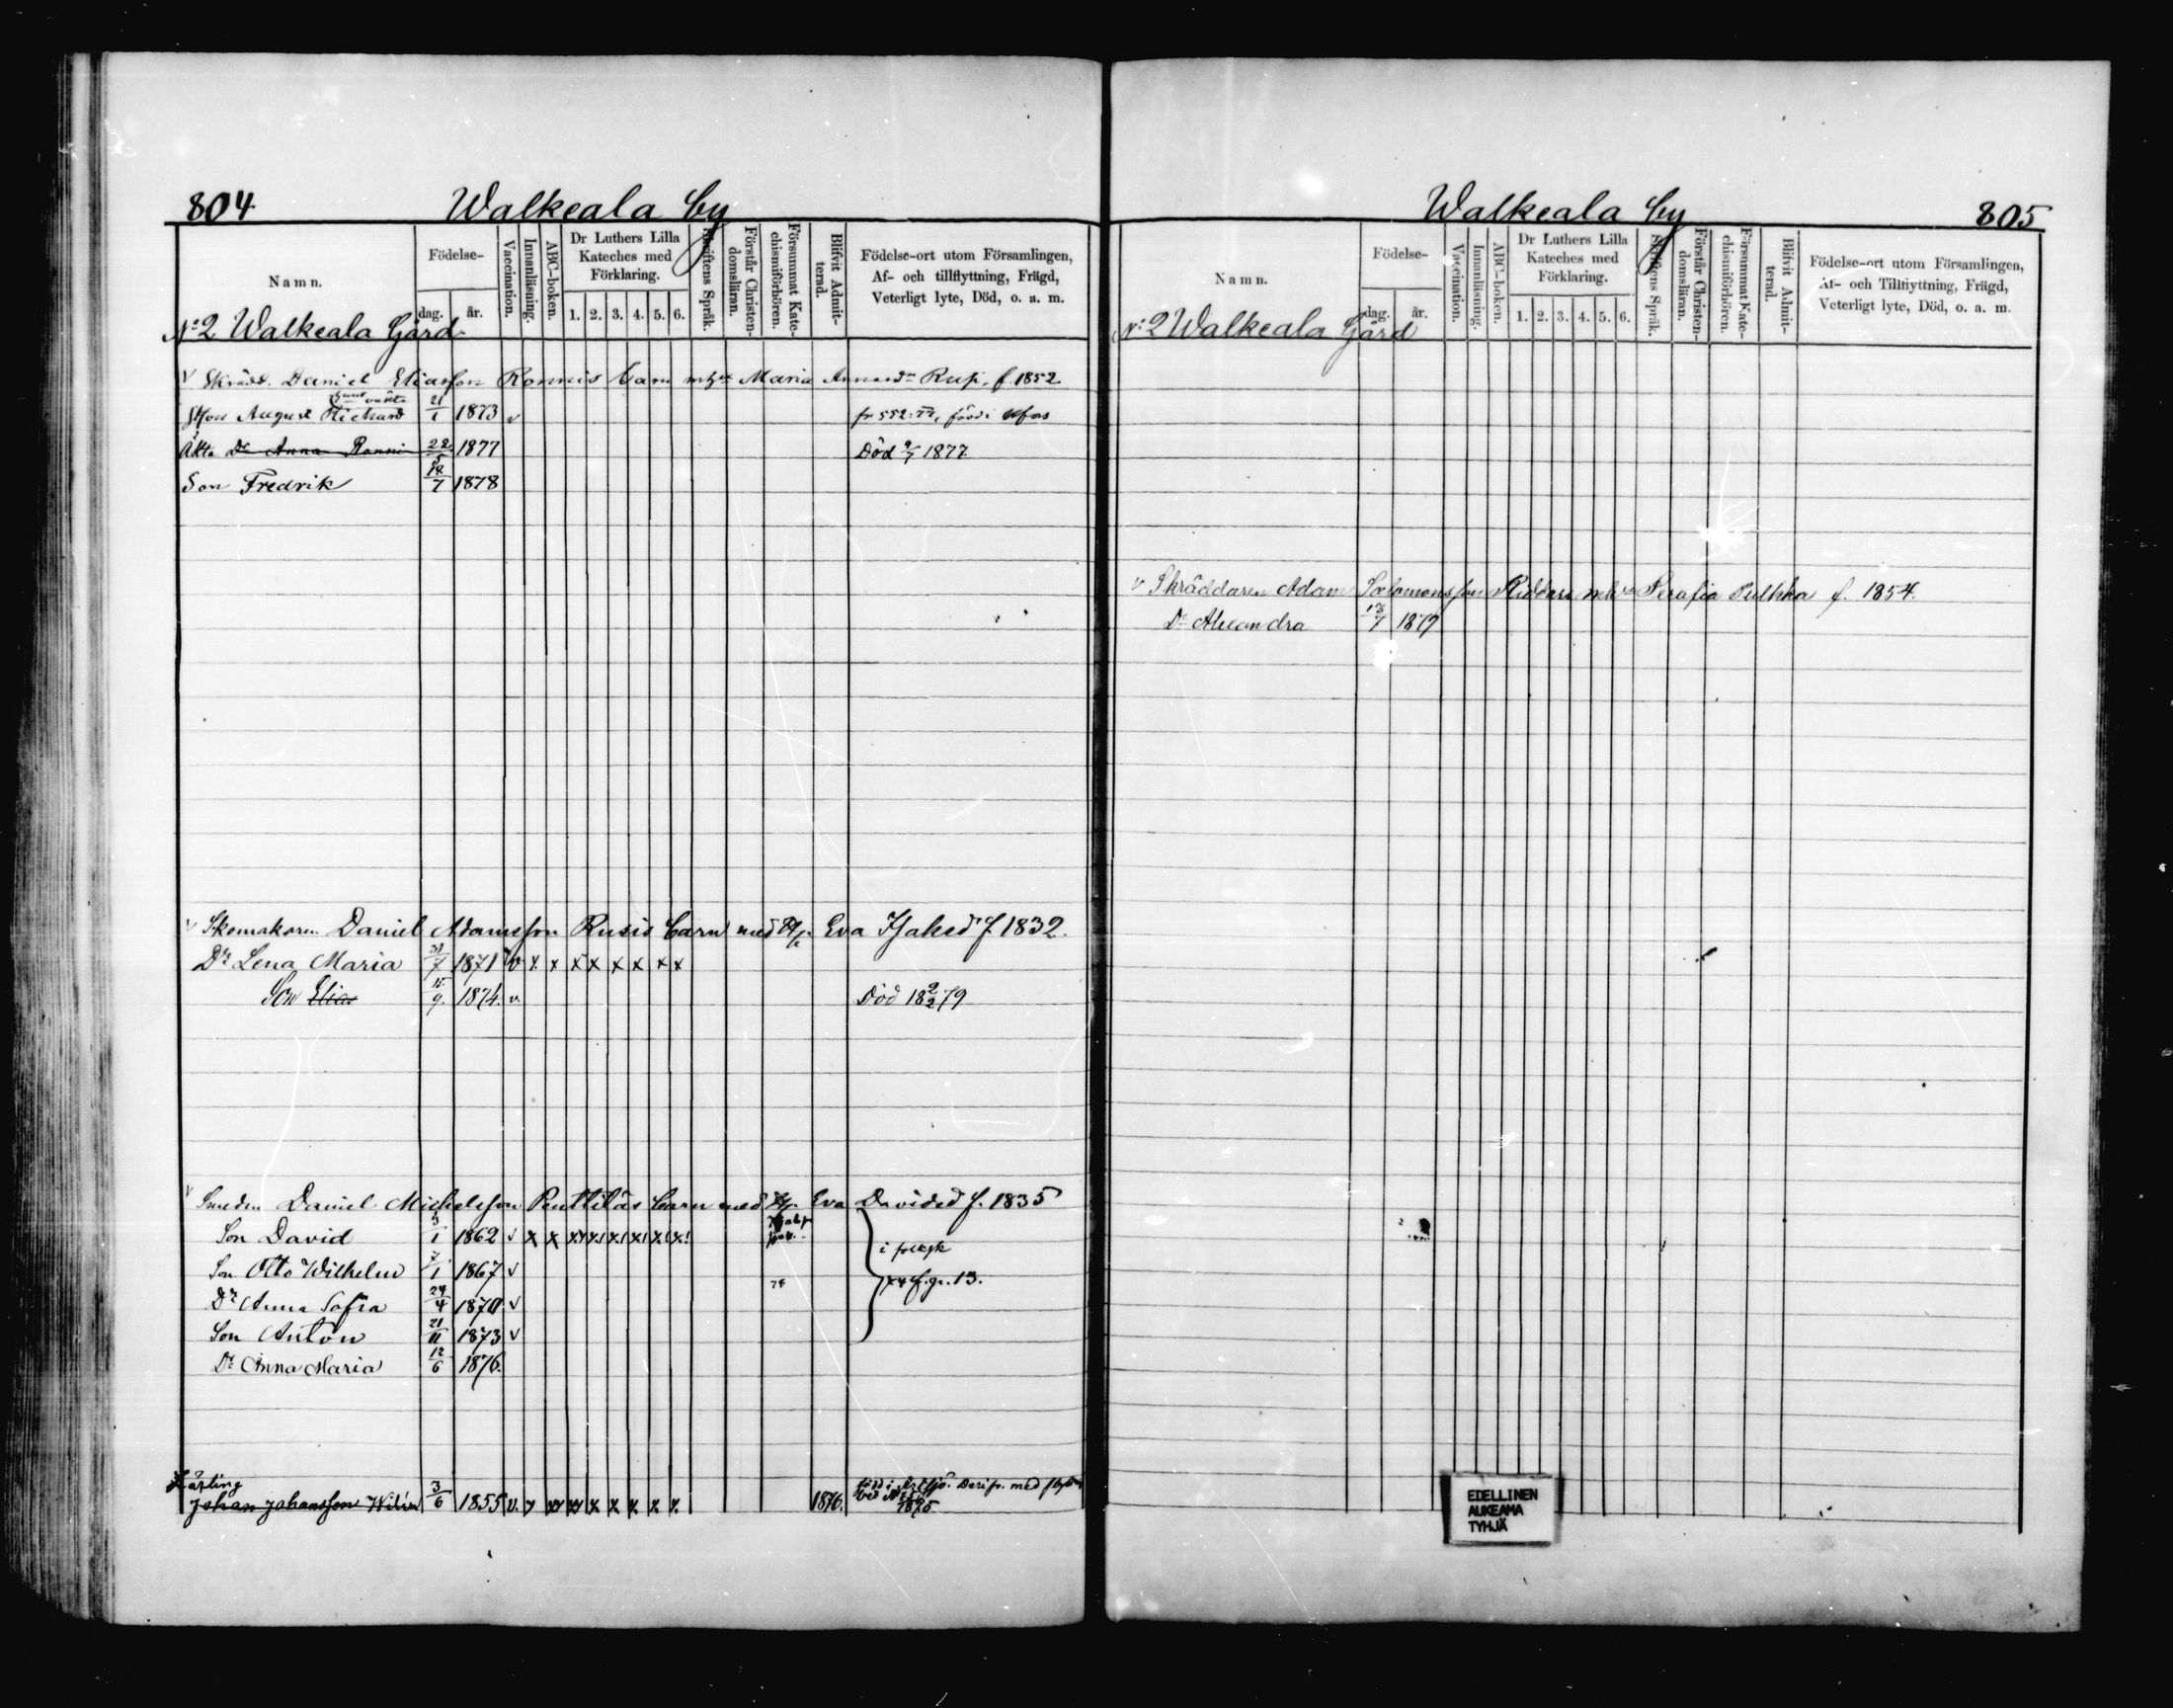 804 Walkeala by
Namn.
Födelse-
dag. år.
Vaccination.
Innanläsning.
ABC-boken.
Dr Luthers Lilla
Kateches med
Förklaring.
1. 2. 3. 4. 5. 6.
Skriftens Språk.
Förstår Christen-
domsläran.
Försummat Kate-
chismiförhören.
Blifvit Admit-
terad.
Födelse-ort utom Församlingen,
Af- och tillflyttning, Frägd,
Veterligt lyte, Död, o. a. m.
No 2 Walkeala Gård
v Skrädd. Daniel Eliasson Ronnis barn Maria f. 1852
Son August Richard 21/1 1873 v
Äkta Dr Anna 22/5 1877 Död 9/7 1877
Son Fredrik 18/7 1878
v Skomakaren Daniel Adamsson Rusis barn med Eva Isaksd f. 1832.
Dr Lena Maria 31/7 1871 v x x x x x x x x
Son Elias 15/9 1874 v. Död 18 2/2 79
v Smeden Daniel Michelsson Penttiläs barn med Eva Davidsd f. 1835
Son David 3/1 1862 v x x
i folksk
Son Otto Wilhelm 7/1 1867 v 78 f. gr. 13.
Dr Anna Sofia 29/4 1870 v
Son Anton 21/11 1873 v
Dr Anna Maria 12/6 1876.
Lärling
Johan Johansson 3/6 1855 v. 1876. 1876
Walkeala by 805
Namn.
Födelse-
dag. år.
Vaccination.
Innanläsning.
ABC-boken.
Dr Luthers Lilla
Kateches med
Förklaring.
1. 2. 3. 4. 5. 6.
Skriftens Språk.
Förstår Christen-
domsläran.
Försummat Kate-
chismiförhören.
Blifvit Admit-
terad.
Födelse-ort utom Församlingen,
Af- och Tillflyttning, Frägd,
Veterligt lyte, Död, o. a. m.
No 2 Walkeala Gård
v Skräddaren Adam Salomonsson Riddars Serafia Pulkka f. 1854.
Dr Alexandra 13/7 1879
EDELLINEN
AUKEAMA
TYHJÄ